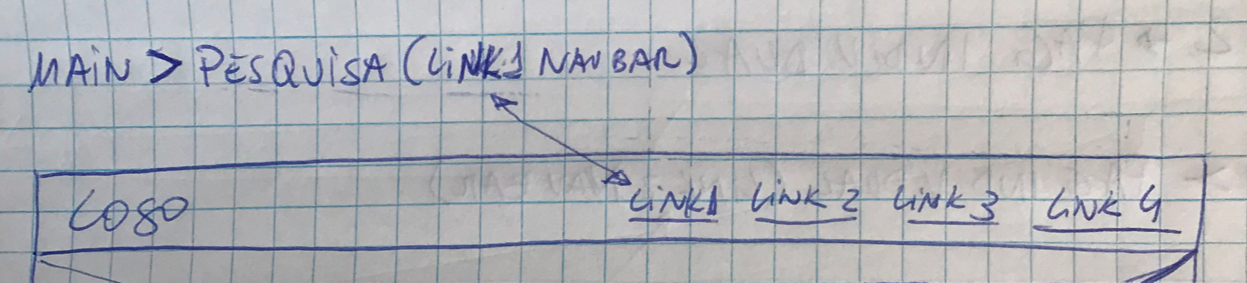 MAIN > PESQUISA (LINK1 NAVBAR)
LOGO LINK1 LINK 2 LINK 3 LINK 4